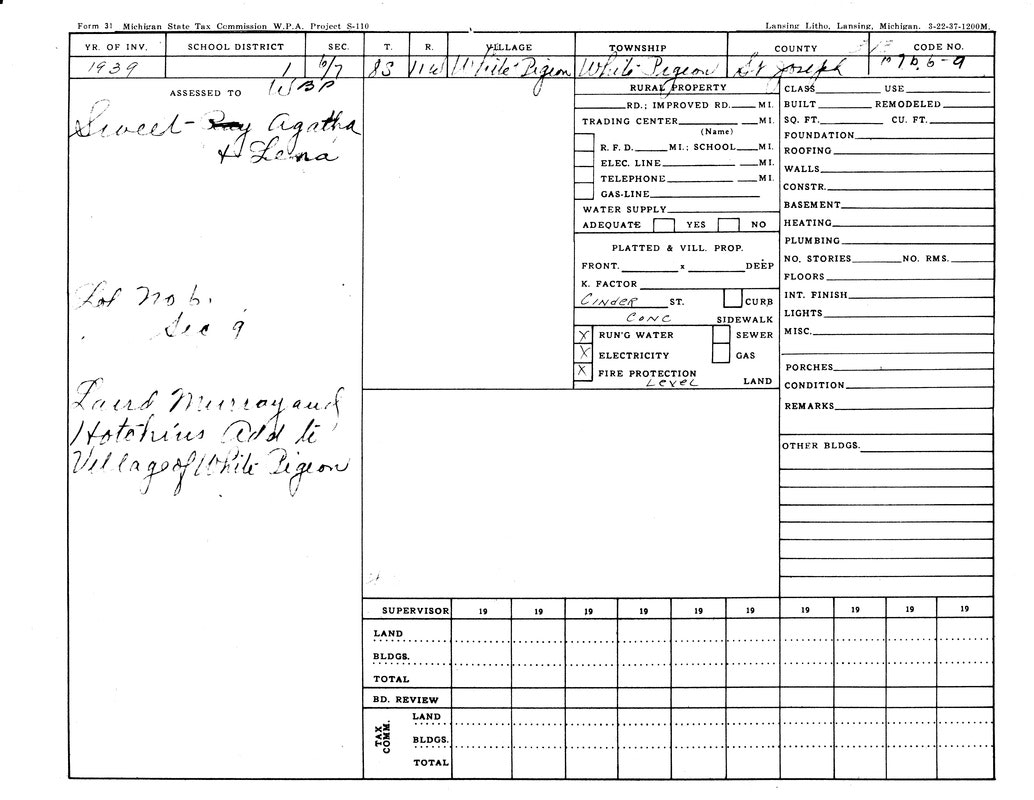 Form 31 Michigan State Tax Commission W.P.A. Project S-110
Lansing Litho, Lansing, Michigan. 3-22-37-1200M.
YR. OF INV. SCHOOL DISTRICT SEC. T. R. VILLAGE TOWNSHIP COUNTY CODE NO.
1939 1 6/7 8S 11W White Pigeon White Pigeon St Joseph
ASSESSED TO
Sweet- Ray Agatha
+ Lena
Lot No 6.
Sec 9
Laird Murray and
Hotchins Add to
Village of White Pigeon
RURAL PROPERTY
RD.; IMPROVED RD. MI.
TRADING CENTER MI.
(Name)
R. F. D. MI.; SCHOOL MI.
ELEC. LINE MI.
TELEPHONE MI.
GAS-LINE
WATER SUPPLY
ADEQUATE YES NO
PLATTED & VILL. PROP.
FRONT. x DEEP
K. FACTOR
CINDER ST. CURB
CONC SIDEWALK
X RUN'G WATER SEWER
X ELECTRICITY GAS
X FIRE PROTECTION
LEVEL LAND
CLASS USE
BUILT REMODELED
SQ. FT. CU. FT.
FOUNDATION
ROOFING
WALLS
CONSTR.
BASEMENT
HEATING
PLUMBING
NO. STORIES NO. RMS.
FLOORS
INT. FINISH
LIGHTS
MISC.
PORCHES
CONDITION
REMARKS
OTHER BLDGS.
SUPERVISOR 19 19 19 19 19 19 19 19 19 19
LAND
BLDGS.
TOTAL
BD. REVIEW
TAX COMM.
LAND
BLDGS.
TOTAL